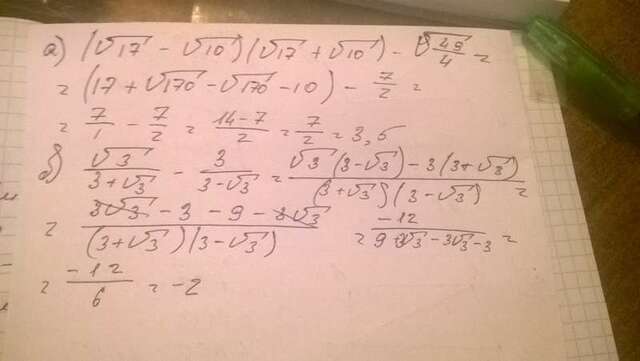 а) (√17 - √10)(√17 + √10) - √49/4 =
= (17 + √170 - √170 - 10) - 7/2 =
= 7/1 - 7/2 = 14-7/2 = 7/2 = 3,5
б) √3/3+√3 - 3/3-√3 = √3(3-√3) - 3(3+√3)/(3+√3)(3-√3) =
= 3√3 - 3 - 9 - 3√3/(3+√3)(3-√3) = -12/9+3√3-3√3-3 =
= -12/6 = -2